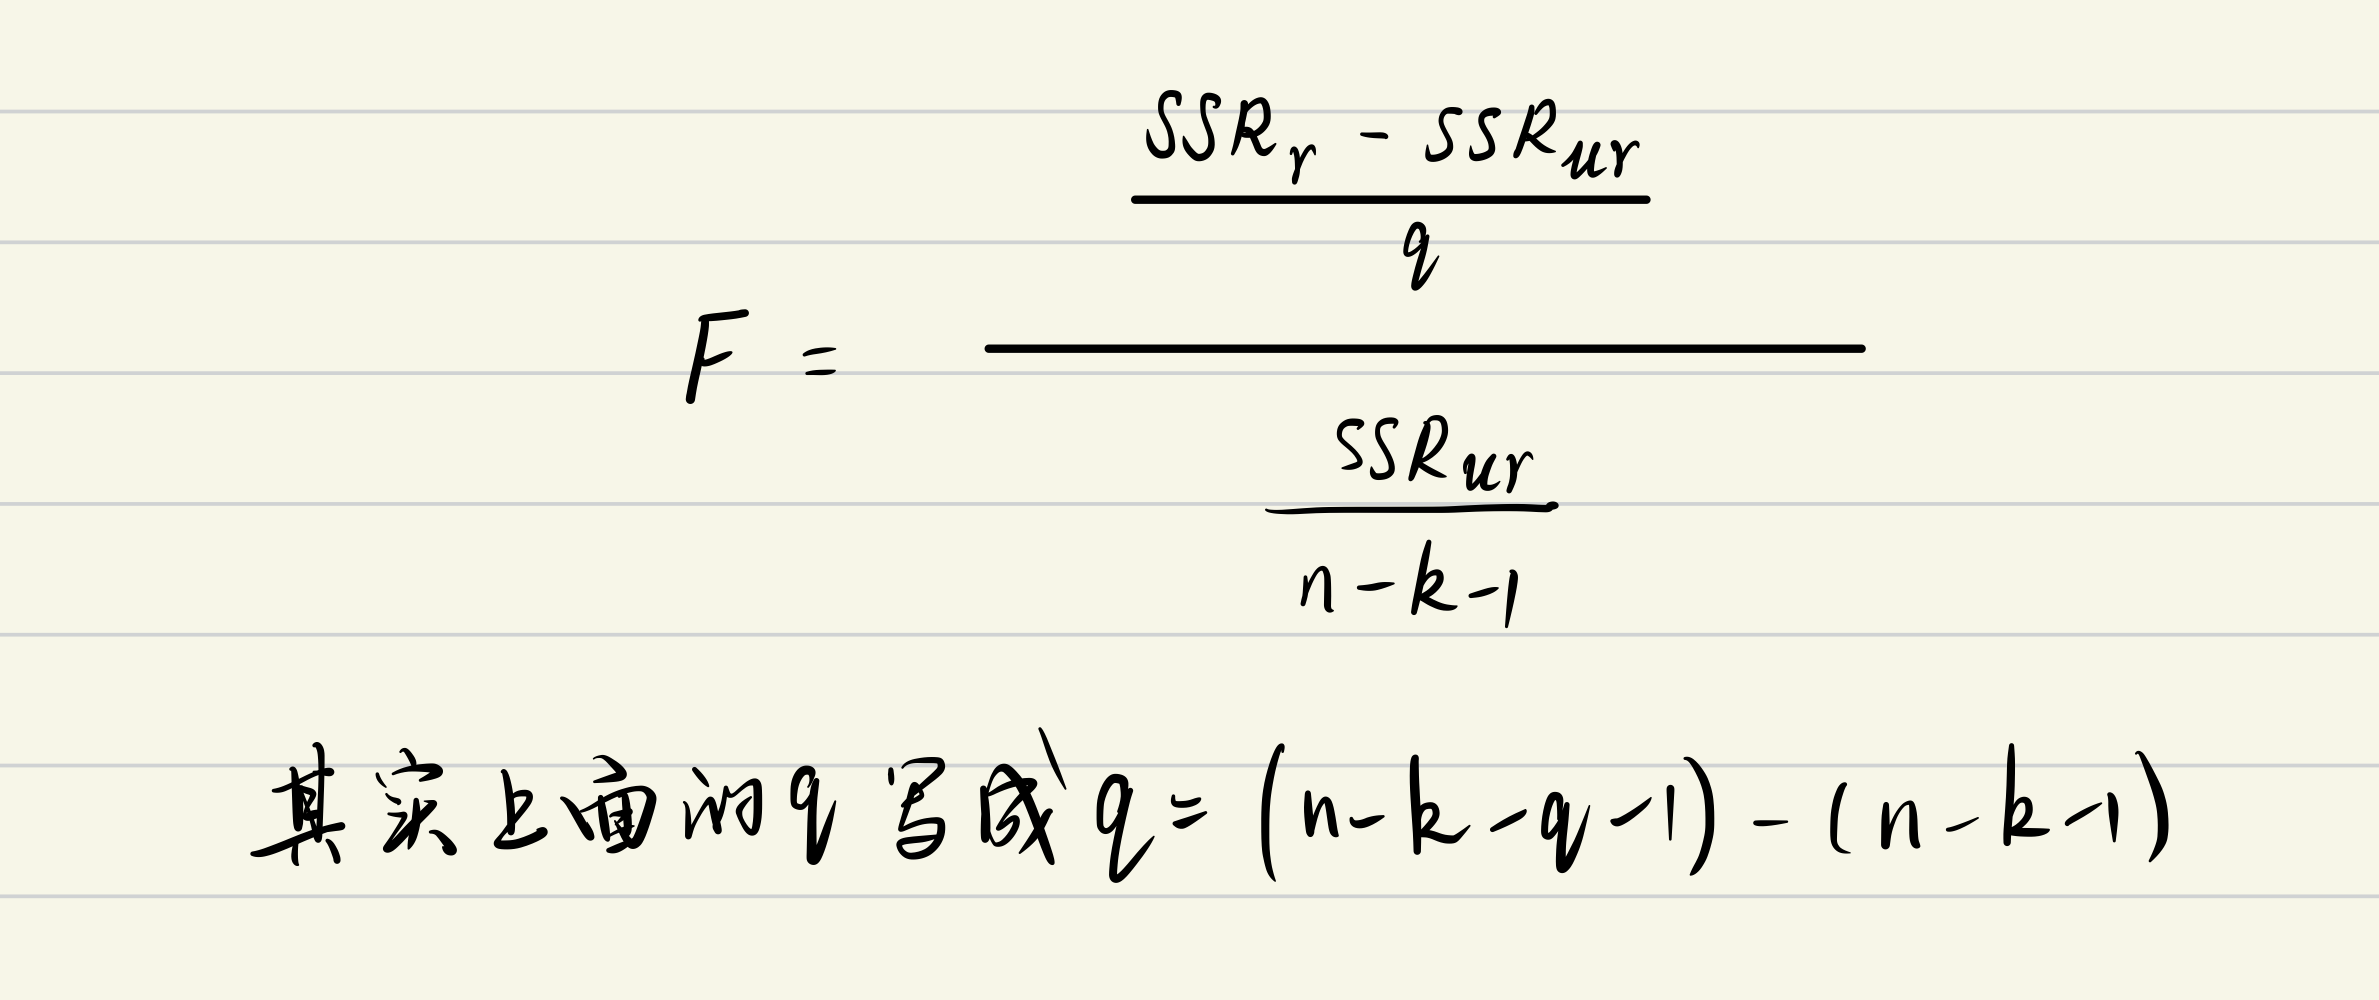 SSRr - SSRur
q
F =
SSRur
n-k-1
其实上面的q写成 q = (n-k-q-1) - (n-k-1)